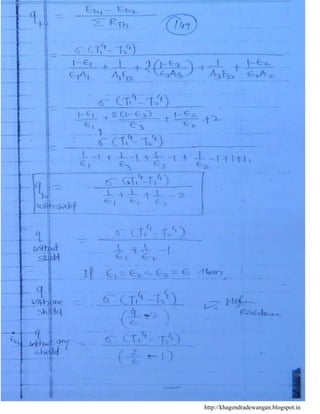 q = Eb1 - Eb2 / Σ RTh
147
= σ (T₁⁴ - T₂⁴) / 1-ε₁/ε₁A₁ + 1/A₁F₁₃ + 2(1-ε₃/ε₃A₃) + 1/A₃F₃₂ + 1-ε₂/ε₂A₂
= σ (T₁⁴ - T₂⁴) / 1-ε₁/ε₁ + 2(1-ε₃)/ε₃ + 1-ε₂/ε₂ + 2
= σ (T₁⁴ - T₂⁴) / 1/ε₁ - 1 + 1/ε₃ - 1 + 1/ε₃ - 1 + 1/ε₂ - 1 + 1 + 1
q = σ (T₁⁴ - T₂⁴) / 1/ε₁ + 1/ε₂ + 2/ε₃ - 2
q without shield = σ (T₁⁴ - T₂⁴) / 1/ε₁ + 1/ε₂ - 1
If ε₁ = ε₂ = ε₃ = ε then
q with one shield = σ (T₁⁴ - T₂⁴) / (4/ε - 2)
Higher
Resistance
q without any shield = σ (T₁⁴ - T₂⁴) / (2/ε - 1)
http://khagendradewangan.blogspot.in